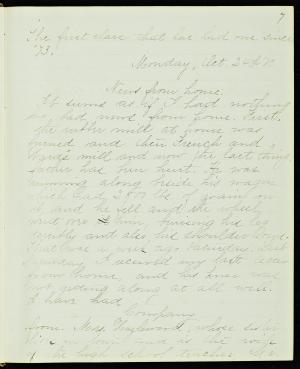 7
The first class that has had one since
'73.
Monday, Oct. 24
News from home.
It seems as if I had nothing
bad news from home. First
the mill at home was
burned and then French and
Ward's mill and now the last thing,
father has been hurt. He was
running along beside his wagon
which had 2800 lbs of grain on
it and he fell and the wheels
went over him, bruising his leg
terribly and also his shoulder some.
That was a week ago Saturday. Last
I received my last letter
from home, and his knee was
not getting along at all well.
I have had
Company
from Miss whose sister
in town and is the wife
of the high school teacher